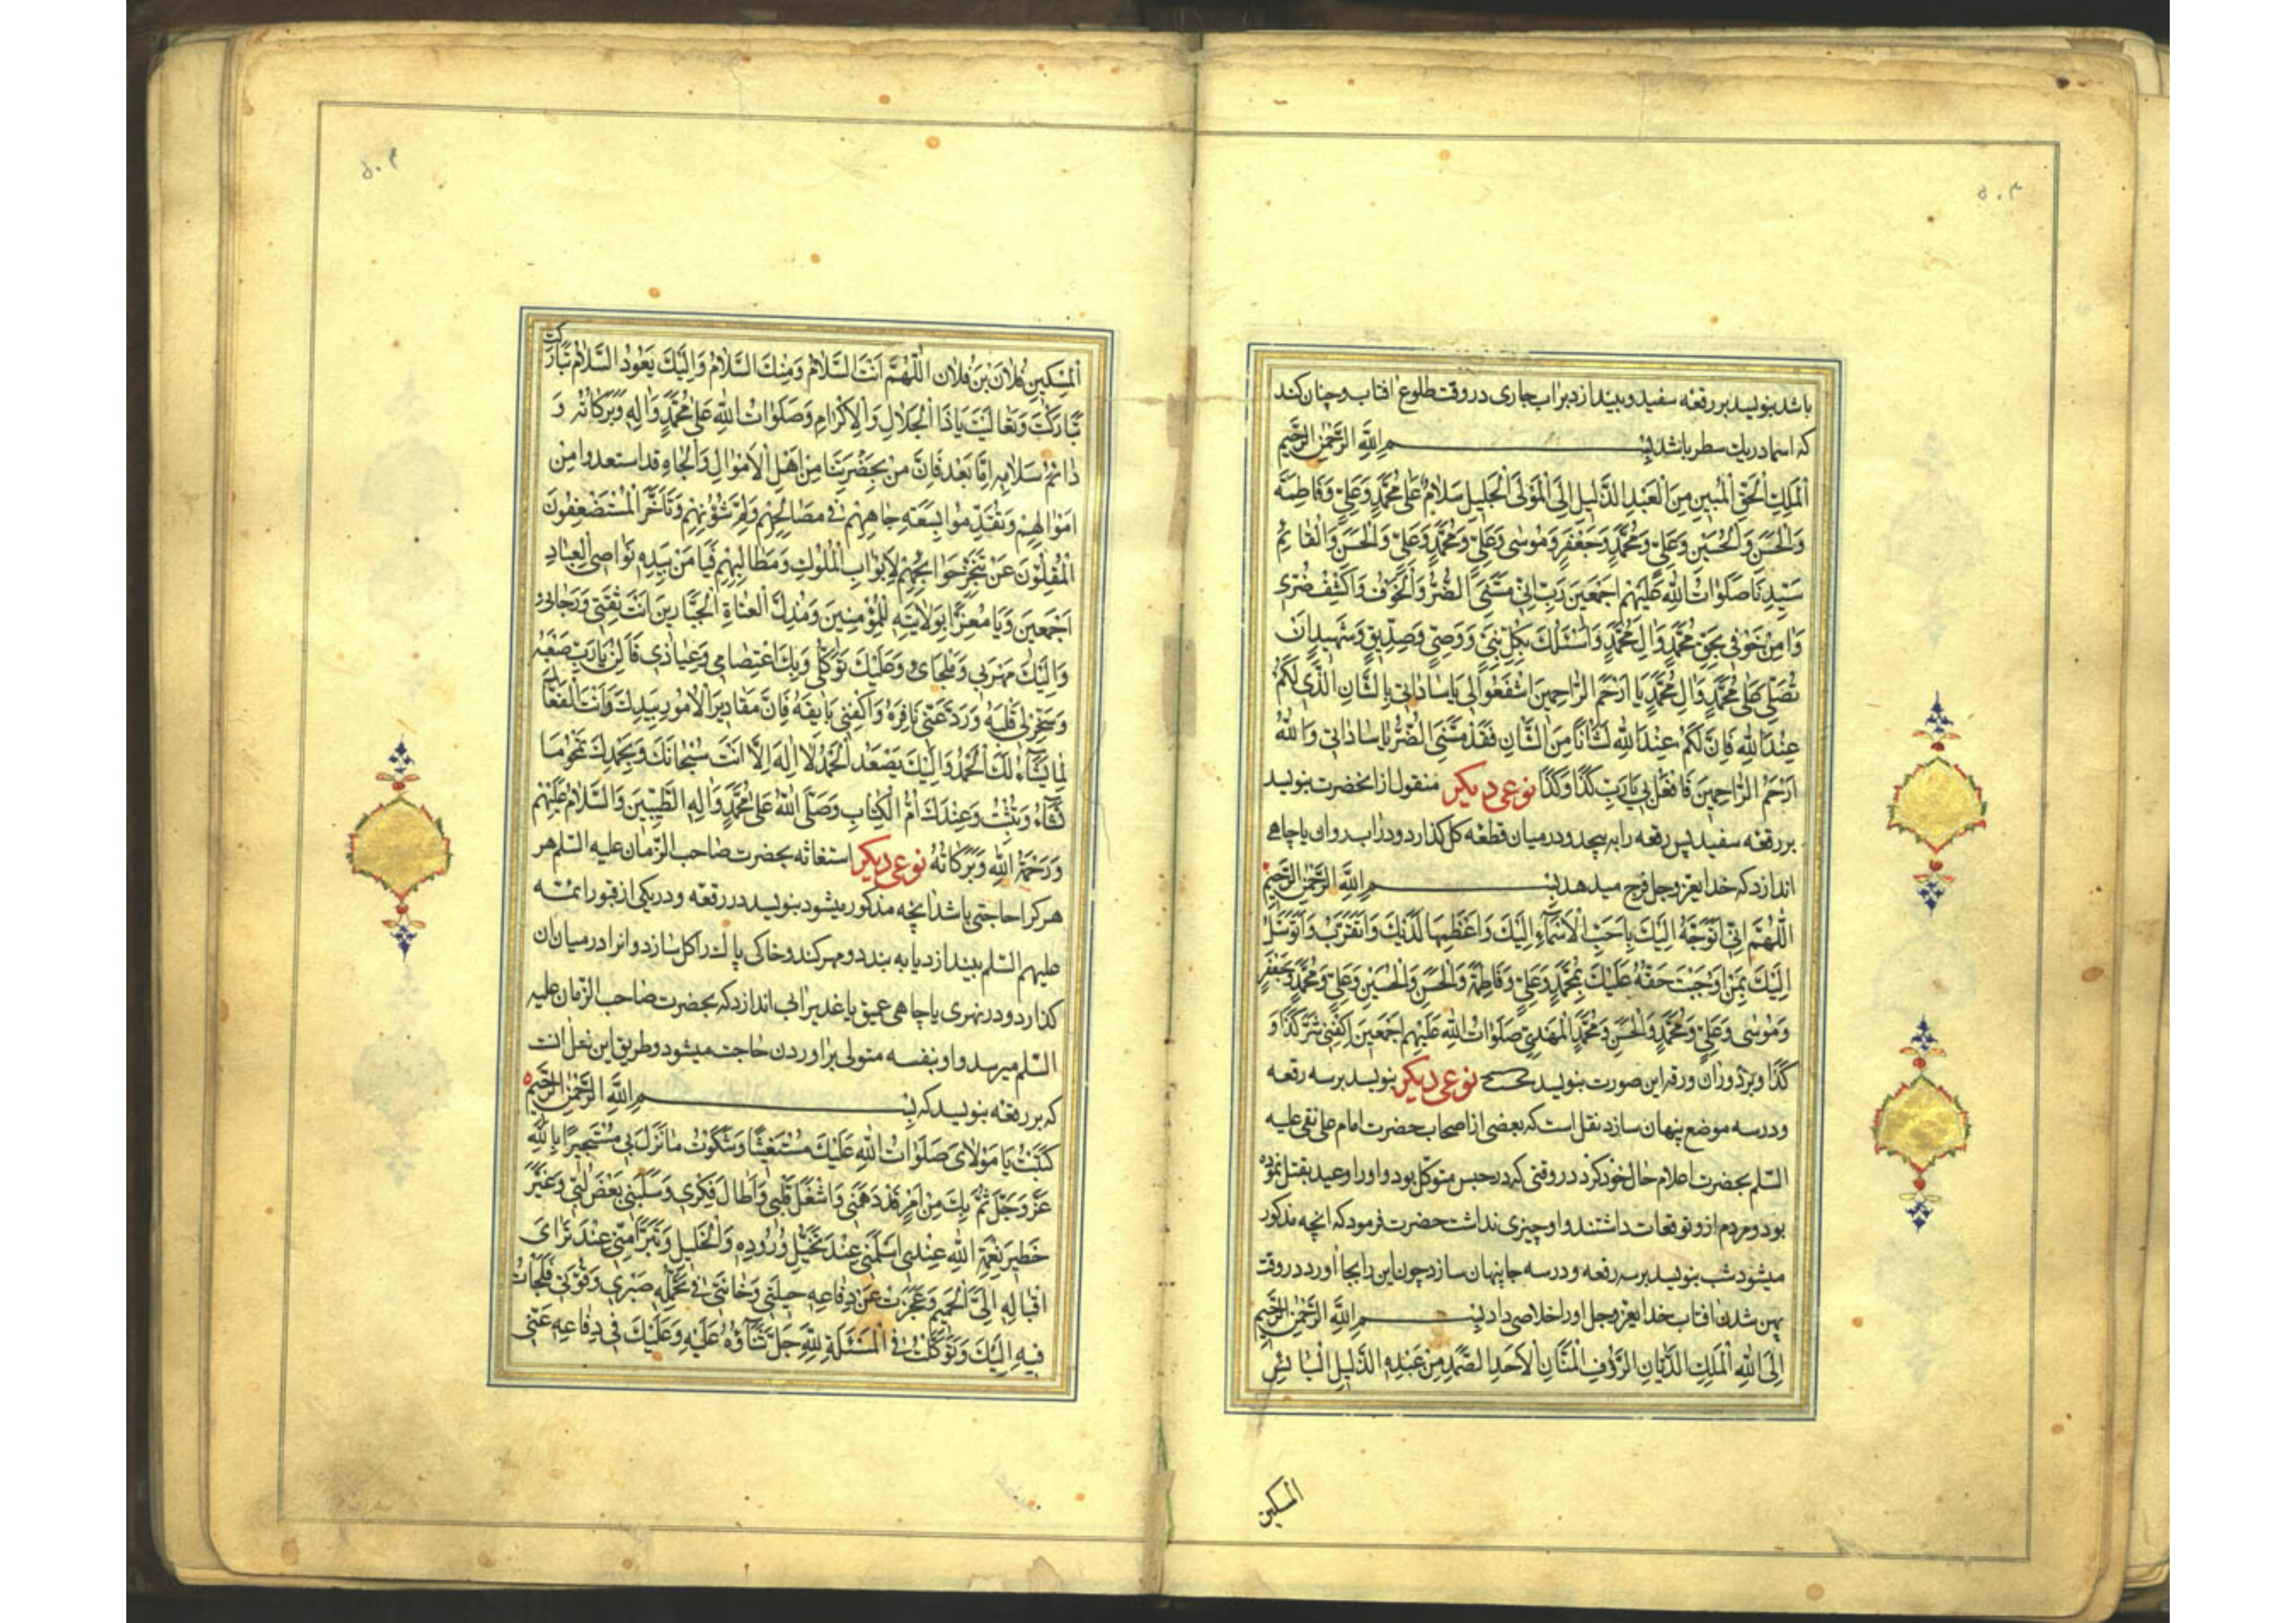 ۵۰۳
باشد بنویسد بر رقعه سفید و بیندازد بر اب جاری در وقت طلوع افتاب و چنان کند
که اسما در یک سطر باشد بِسْمِ اللّٰهِ الرَّحْمٰنِ الرَّحِيْمِ
اَلْمَلِكِ الْحَقِّ الْمُبِينِ مِنَ الْعَبْدِ الذَّلِيلِ اِلَى الْمَوْلَى الْجَلِيلِ سَلَامٌ عَلىٰ مُحَمَّدٍ وَعَلِيٍّ وَفَاطِمَةَ
وَالْحَسَنِ وَالْحُسَيْنِ وَعَلِيٍّ وَمُحَمَّدٍ وَجَعْفَرٍ وَمُوسٰى وَعَلِيٍّ وَمُحَمَّدٍ وَعَلِيٍّ وَالْحَسَنِ وَالْقٰائِمِ
سَيِّدِنَا صَلَوٰاتُ اللّٰهِ عَلَيْهِمْ اَجْمَعِينَ رَبِّ اِنّي مَسَّنِيَ الضُّرُّ وَالْخَوْفُ وَاكْشِفْ ضُرّي
وَاٰمِنْ خَوْفي بِحَقِّ مُحَمَّدٍ وَاٰلِ مُحَمَّدٍ وَاَسْئَلُكَ بِكُلِّ نَبِيٍّ وَوَصِيٍّ وَصِدّيقٍ وَشَهيدٍ اَنْ
تُصَلِّيَ عَلىٰ مُحَمَّدٍ وَاٰلِ مُحَمَّدٍ يَا اَرْحَمَ الرّٰاحِمينَ اِشْفَعُوا لي يَا سٰادٰاتي بِالشَّانِ الَّذي لَكُمْ
عِنْدَ اللّٰهِ فَاِنَّ لَكُمْ عِنْدَ اللّٰهِ لَشَانًا مِنَ الشَّانِ فَقَدْ مَسَّنِيَ الضُّرُّ يٰا سٰادٰاتي وَاللّٰهُ
اَرْحَمُ الرّٰاحِمينَ فَافْعَلْ بي يٰا رَبِّ كَذَا وَكَذَا نوعی دیکر منقول از انحضرت بنویسد
بر رقعه سفید پس رقعه را به پیچد و در میان قطعه کل کذارد و در اب روان یا چاهی
اندازد که خدایعزوجل فرج میدهد بِسْمِ اللّٰهِ الرَّحْمٰنِ الرَّحِيْمِ
اَللّٰهُمَّ اِنّي اَتَوَجَّهُ اِلَيْكَ بِاَحَبِّ الْاَسْمٰآءِ اِلَيْكَ وَاَعْظَمِهٰا لَدَيْكَ وَاَتَقَرَّبُ وَاَتَوَسَّلُ
اِلَيْكَ بِمَنْ اَوْجَبْتَ حَقَّهُ عَلَيْكَ بِمُحَمَّدٍ وَعَلِيٍّ وَفَاطِمَةَ وَالْحَسَنِ وَالْحُسَيْنِ وَعَلِيٍّ وَمُحَمَّدٍ وَجَعْفَرٍ
وَمُوسٰى وَعَلِيٍّ وَمُحَمَّدٍ وَالْحَسَنِ وَمُحَمَّدٍ الْمَهْدِيِّ صَلَوٰاتُ اللّٰهِ عَلَيْهِمْ اَجْمَعينَ اِكْفِني شَرَّ كَذَا وَ
كَذَا و بر دور ان ورقه این صورت بنویسد نوعی دیکر بنویسد بر سه رقعه
و در سه موضع پنهان سازد نقل است که بعضی از اصحاب حضرت امام علی نقی علیه
السّلم بحضرت اعلام حال خود کرد در وقتی که در حبس متوکل بود و او را وعید بقتل نموده
بود و مردم ازو توقعات داشتند و او چیزی نداشت حضرت فرمود که انچه مذکور
میشود شب بنویسد بر سه رقعه و در سه جا پنهان سازد چون این را بجا اورد در وقت
پهن شدن افتاب خدایعزوجل او را خلاصی داد بِسْمِ اللّٰهِ الرَّحْمٰنِ الرَّحِيْمِ
اِلَى اللّٰهِ الْمَلِكِ الدَّيّٰانِ الرَّؤُفِ الْمَنّٰانِ الْاَحَدِ الصَّمَدِ مِنْ عَبْدِهِ الذَّليلِ الْبٰائِسِ
المسکین
اَلْمِسْكينِ فُلَانِ بْنِ فُلَان اَللّٰهُمَّ اَنْتَ السَّلَامُ وَمِنْكَ السَّلَامُ وَاِلَيْكَ يَعُودُ السَّلَامُ تَبٰارَكْتَ
تَبٰارَكْتَ وَتَعٰالَيْتَ يٰا ذَا الْجَلَالِ وَالْاِكْرٰامِ وَصَلَوٰاتُ اللّٰهِ عَلىٰ مُحَمَّدٍ وَاٰلِهِ وَبَرَكٰاتُهُ وَ
دٰائِمُ سَلَامِهِ اَمّٰا بَعْدُ فَاِنَّ مَنْ بِحَضْرَتِنٰا مِنْ اَهْلِ الْاَمْوٰالِ وَالْجٰاهِ قد استعدوا من
اَمْوٰالِهِمْ وَتَقَدَّمُوا بِسَعَةِ جٰاهِهِمْ في مَصٰالِحِهِمْ وَلَمِّ شُؤُنِهِمْ وَتَاَخَّرَ الْمُسْتَضْعَفُونَ
الْمُقِلُّونَ عَنْ تَنَجُّزِ حَوٰائِجِهِمْ لِاَبْوٰابِ الْمُلُوكِ وَمَطٰالِبِهِمْ فَيٰا مَنْ بِيَدِهِ نَوٰاصِي الْعِبٰادِ
اَجْمَعينَ وَيٰا مُعِزًّا بِوَلَايَتِهِ لِلْمُؤْمِنينَ وَمُذِلَّ الْعُتٰاةِ الْجَبّٰارينَ اَنْتَ ثِقَتي وَرَجٰائي
وَاِلَيْكَ مَهْرَبي وَمَلْجَائي وَعَلَيْكَ تَوَكُّلي وَبِكَ اعْتِصٰامي وَعِيٰاذي فَاَلِنْ يٰا رَبِّ صَعْبَهُ
وَسَخِّرْ لي قَلْبَهُ وَرُدَّ عَنّي نٰافِرَهُ وَاكْفِني بٰايِقَهُ فَاِنَّ مَقٰاديرَ الْاُمُورِ بِيَدِكَ وَاَنْتَ الْفَعّٰالُ
لِمٰا يَشٰآءُ لَكَ الْحَمْدُ وَاِلَيْكَ يَصْعَدُ الْحَمْدُ لَا اِلٰهَ اِلَّا اَنْتَ سُبْحٰانَكَ وَبِحَمْدِكَ تَمْحُو مٰا
تَشٰآءُ وَتُثْبِتُ وَعِنْدَكَ اُمُّ الْكِتٰابِ وَصَلَّى اللّٰهُ عَلىٰ مُحَمَّدٍ وَاٰلِهِ الطَّيِّبينَ وَالسَّلَامُ عَلَيْهِمْ
وَرَحْمَةُ اللّٰهِ وَبَرَكٰاتُهُ نوعی دیکر استغاثه بحضرت صاحب الزمان علیه السّلم هر
هر کرا حاجتی باشد انچه مذکور میشود بنویسد در رقعه و در یکی از قبور ائمّه
علیهم السّلم بیندازد یا به بندد و مهر کند و خاکی پاک را کل سازد و انرا در میان ان
کذارد و در نهری یا چاهی عمیق یا غدیر ابی اندازد که بحضرت صاحب الزمان علیه
السّلم میرسد و او بنفسه متولی براوردن حاجت میشود و طریق این فعل انست
که بر رقعه بنویسد که بِسْمِ اللّٰهِ الرَّحْمٰنِ الرَّحِيْمِ
كَتَبْتُ يٰا مَوْلَايَ صَلَوٰاتُ اللّٰهِ عَلَيْكَ مُسْتَغيثًا وَشَكَوْتُ مٰا نَزَلَ بي مُسْتَجيرًا بِاللّٰهِ
عَزَّ وَجَلَّ ثُمَّ بِكَ مِنْ اَمْرٍ قَدْ دَهَمَني وَاَشْغَلَ قَلْبي وَاَطٰالَ فِكْري وَسَلَبَني بَعْضَ لُبّي وَغَيَّرَ
خَطيرَ نِعْمَةِ اللّٰهِ عِنْدي اَسْلَمَني عِنْدَ تَخَيُّلِ وُرُودِهِ وَالْخَليلُ وَتَبَرَّاَ مِنّي عِنْدَ تَرٰائي
اِقْبٰالِهِ اِلَيَّ الْحَميمُ وَعَجَزَتْ عَنْ دِفٰاعِهِ حيلَتي وَخٰانَني في تَحَمُّلِهِ صَبْري وَقُوَّتي فَلَجَاْتُ
فيهِ اِلَيْكَ وَتَوَكَّلْتُ فِي الْمَسْئَلَةِ لِلّٰهِ جَلَّ ثَنٰآؤُهُ عَلَيْهِ وَعَلَيْكَ في دِفٰاعِهِ عَنّي